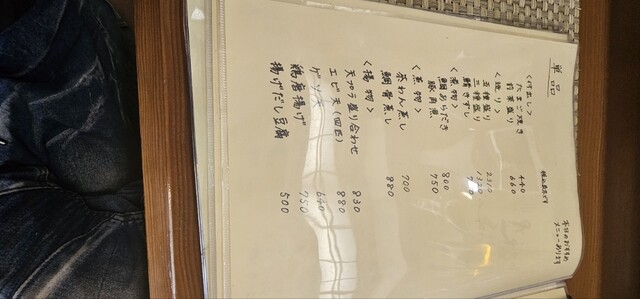 単品
本日のおすすめ
メニューあります
税込表示です
〈付出し〉
たまご焼き 440
前菜盛り 660
〈造り〉
五種盛り 2310
三種盛り 1320
鯖きずし
〈煮物〉
鯛あらだき 800
豚角煮 750
茶わん蒸し 700
鯛骨蒸し 880
〈揚物〉
天プラ盛り合わせ 830
エビ天(四匹) 880
ゲソ天 640
鶏唐揚げ 750
揚げだし豆腐 500